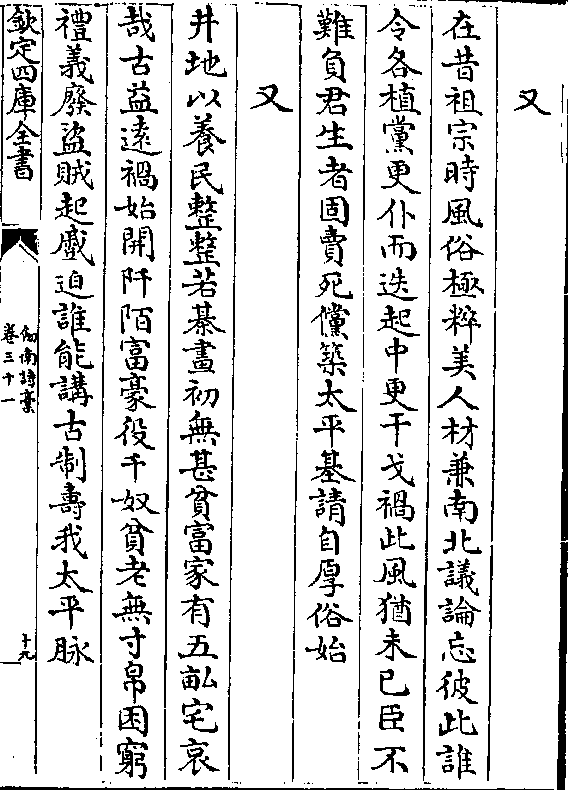 又
在昔祖宗時風俗極粹美人材兼南北議論忘彼此誰
令各植黨更仆而迭起中更干戈禍此風猶未已臣不
難負君生者固賣死儻築太平基請自厚俗始
又
井地以養民整整若棊畫初無甚貧富家有五畝宅哀
哉古益逺禍始開阡陌富豪役千奴貧老無寸帛困窮
禮義廢盜賊起蹙迫誰能講古制壽我太平脉
欽定四庫全書
劔南詩藁
卷三十一
十九